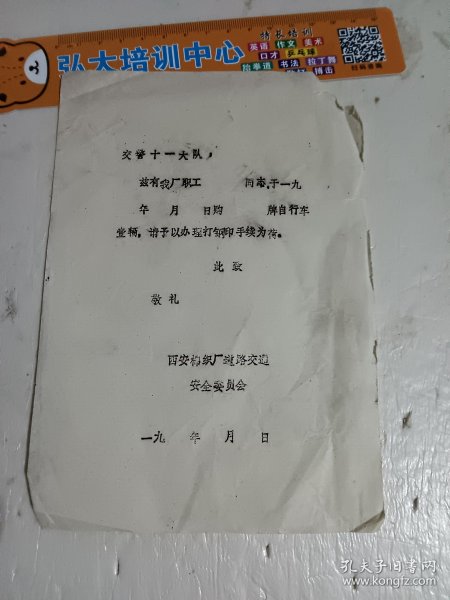 弘大培训中心
特长培训
英语 作文 美术
口才 乒乓球
跆拳道 书法 拉丁舞
搏击
扫码咨询
交警十一大队，
兹有我厂职工 同志，于一九
年 月 日购 牌自行车
壹辆，请予以办理打钢印手续为荷。
此致
敬礼
西安棉织厂道路交通
安全委员会
一九 年 月 日
孔夫子旧书网
www.kongfz.com